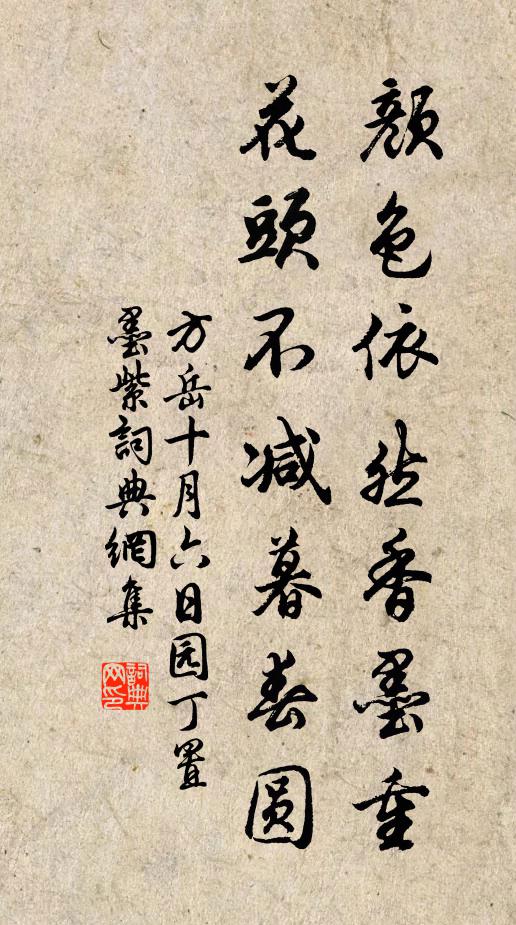 颜色依然香墨重
花頭不减暮春圆
方岳十月六日园丁置
墨紫詞典網集
詞典
网印